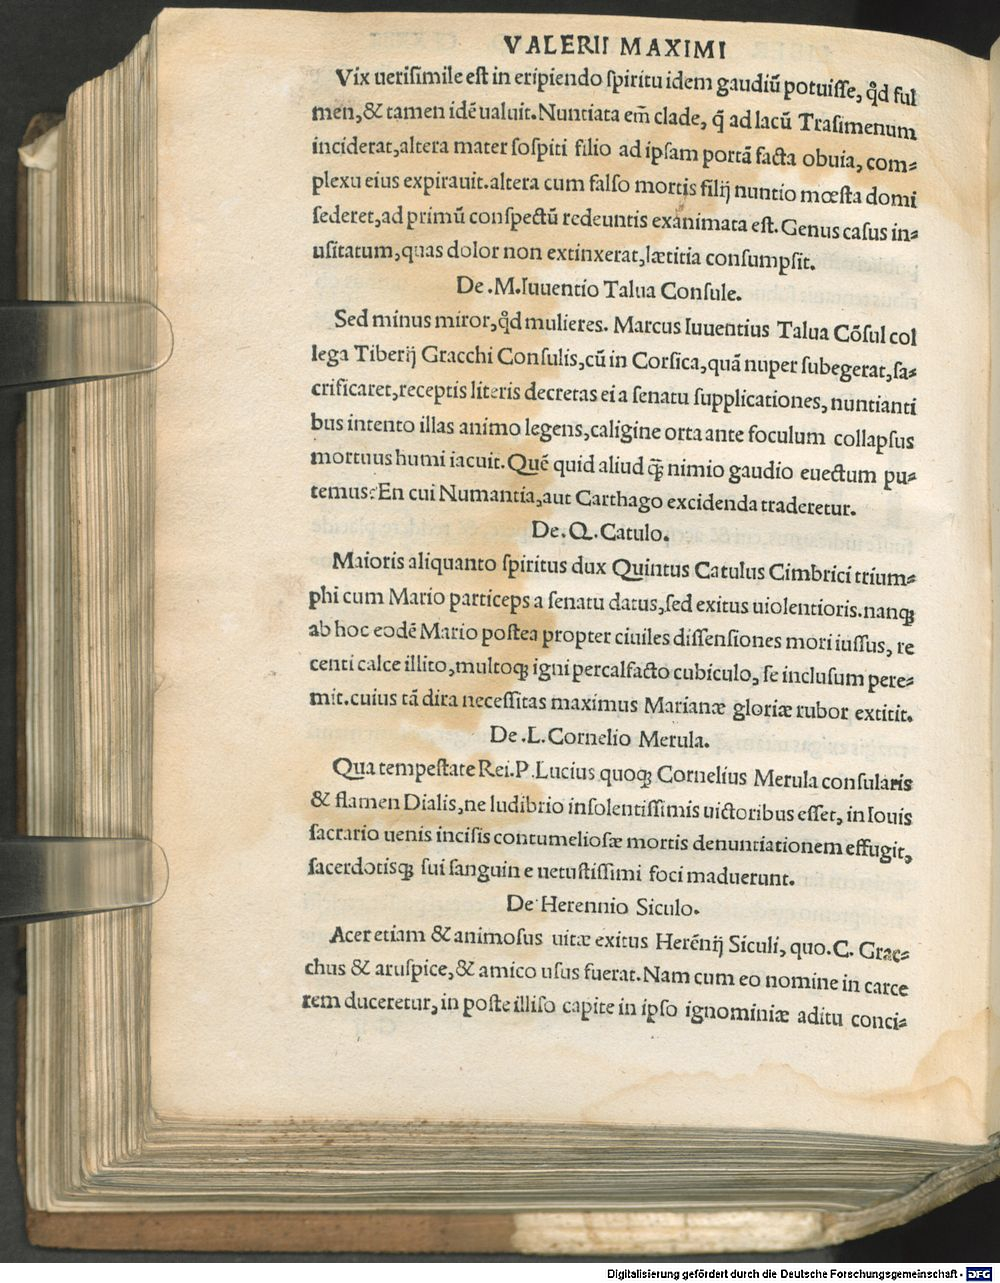 VALERII MAXIMI
Vix ueriſimile eſt in eripiendo ſpiritu idem gaudiū potuiſſe, qđ ful
men, & tamen idē ualuit. Nuntiata em̄ clade, q̄ ad lacū Traſimenum
inciderat, altera mater ſoſpiti filio ad ipſam portā facta obuia, com⸗
plexu eius expirauit. altera cum falſo mortis filij nuntio mœſta domi
ſederet, ad primū conſpectū redeuntis exanimata eſt. Genus caſus in⸗
uſitatum, quas dolor non extinxerat, lætitia conſumpſit.
De .M. Iuuentio Talua Conſule.
Sed minus miror, qđ mulieres. Marcus Iuuentius Talua Cōſul col
lega Tiberij Gracchi Conſulis, cū in Corſica, quā nuper ſubegerat, ſa⸗
crificaret, receptis literis decretas ei a ſenatu ſupplicationes, nuntianti
bus intento illas animo legens, caligine orta ante foculum collapſus
mortuus humi iacuit. Quē quid aliud q̄ꝫ nimio gaudio euectum pu⸗
temus? En cui Numantia, aut Carthago excidenda traderetur.
De. Q. Catulo.
Maioris aliquanto ſpiritus dux Quintus Catulus Cimbrici trium⸗
phi cum Mario particeps a ſenatu datus, ſed exitus uiolentioris. nanqꝫ
ab hoc eodē Mario poſtea propter ciuiles diſſenſiones mori iuſſus, re
centi calce illito, multoqꝫ igni percalfacto cubiculo, ſe incluſum pere⸗
mit. cuius tā dira neceſſitas maximus Marianæ gloriæ rubor extitit.
De .L. Cornelio Merula.
Qua tempeſtate Rei. P. Lucius quoqꝫ Cornelius Merula conſularis
& flamen Dialis, ne ludibrio inſolentiſſimis uictoribus eſſet, in Iouis
ſacrario uenis inciſis contumelioſæ mortis denuntiationem effugit,
ſacerdotisqꝫ ſui ſanguin e uetuſtiſſimi foci maduerunt.
De Herennio Siculo.
Acer etiam & animoſus uitæ exitus Herēnij Siculi, quo. C. Grac⸗
chus & aruſpice, & amico uſus fuerat. Nam cum eo nomine in carce
rem duceretur, in poſte illiſo capite in ipſo ignominiæ aditu conci⸗
Digitalisierung gefördert durch die Deutsche Forschungsgemeinschaft - DFG